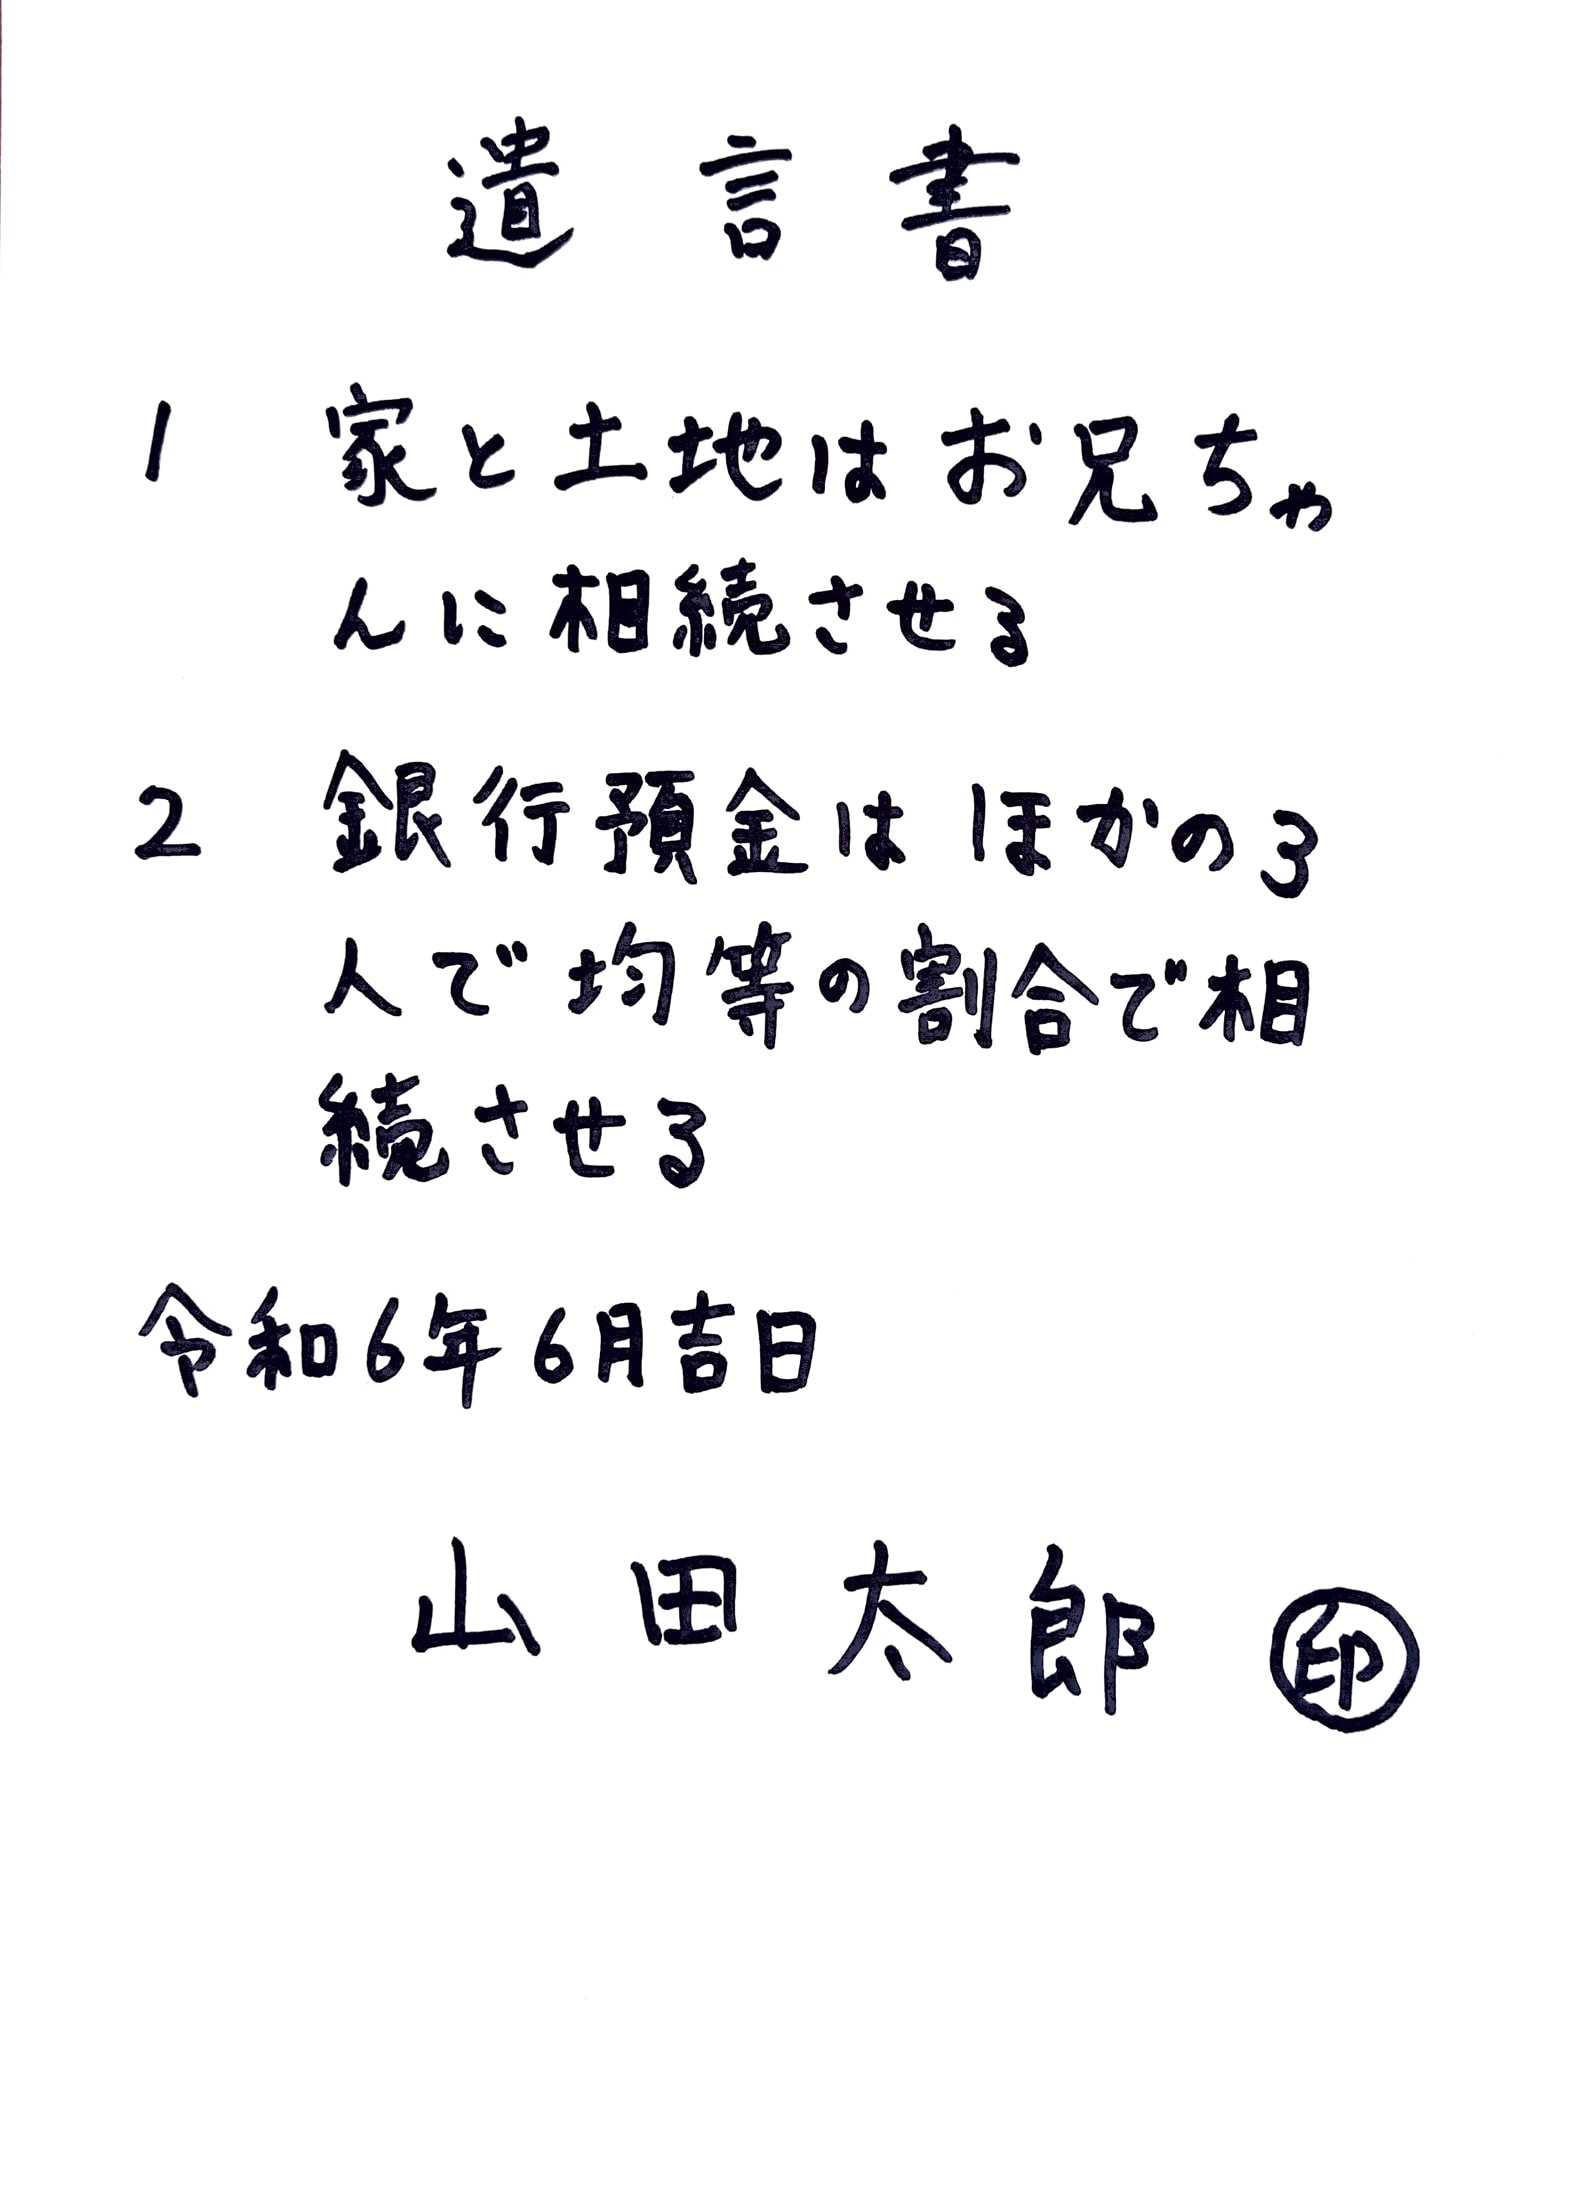 遺言書
1 家と土地はお兄ちゃ
んに相続させる
2 銀行預金はほかの3
人で均等の割合で相
続させる
令和6年6月吉日
山田太郎 印